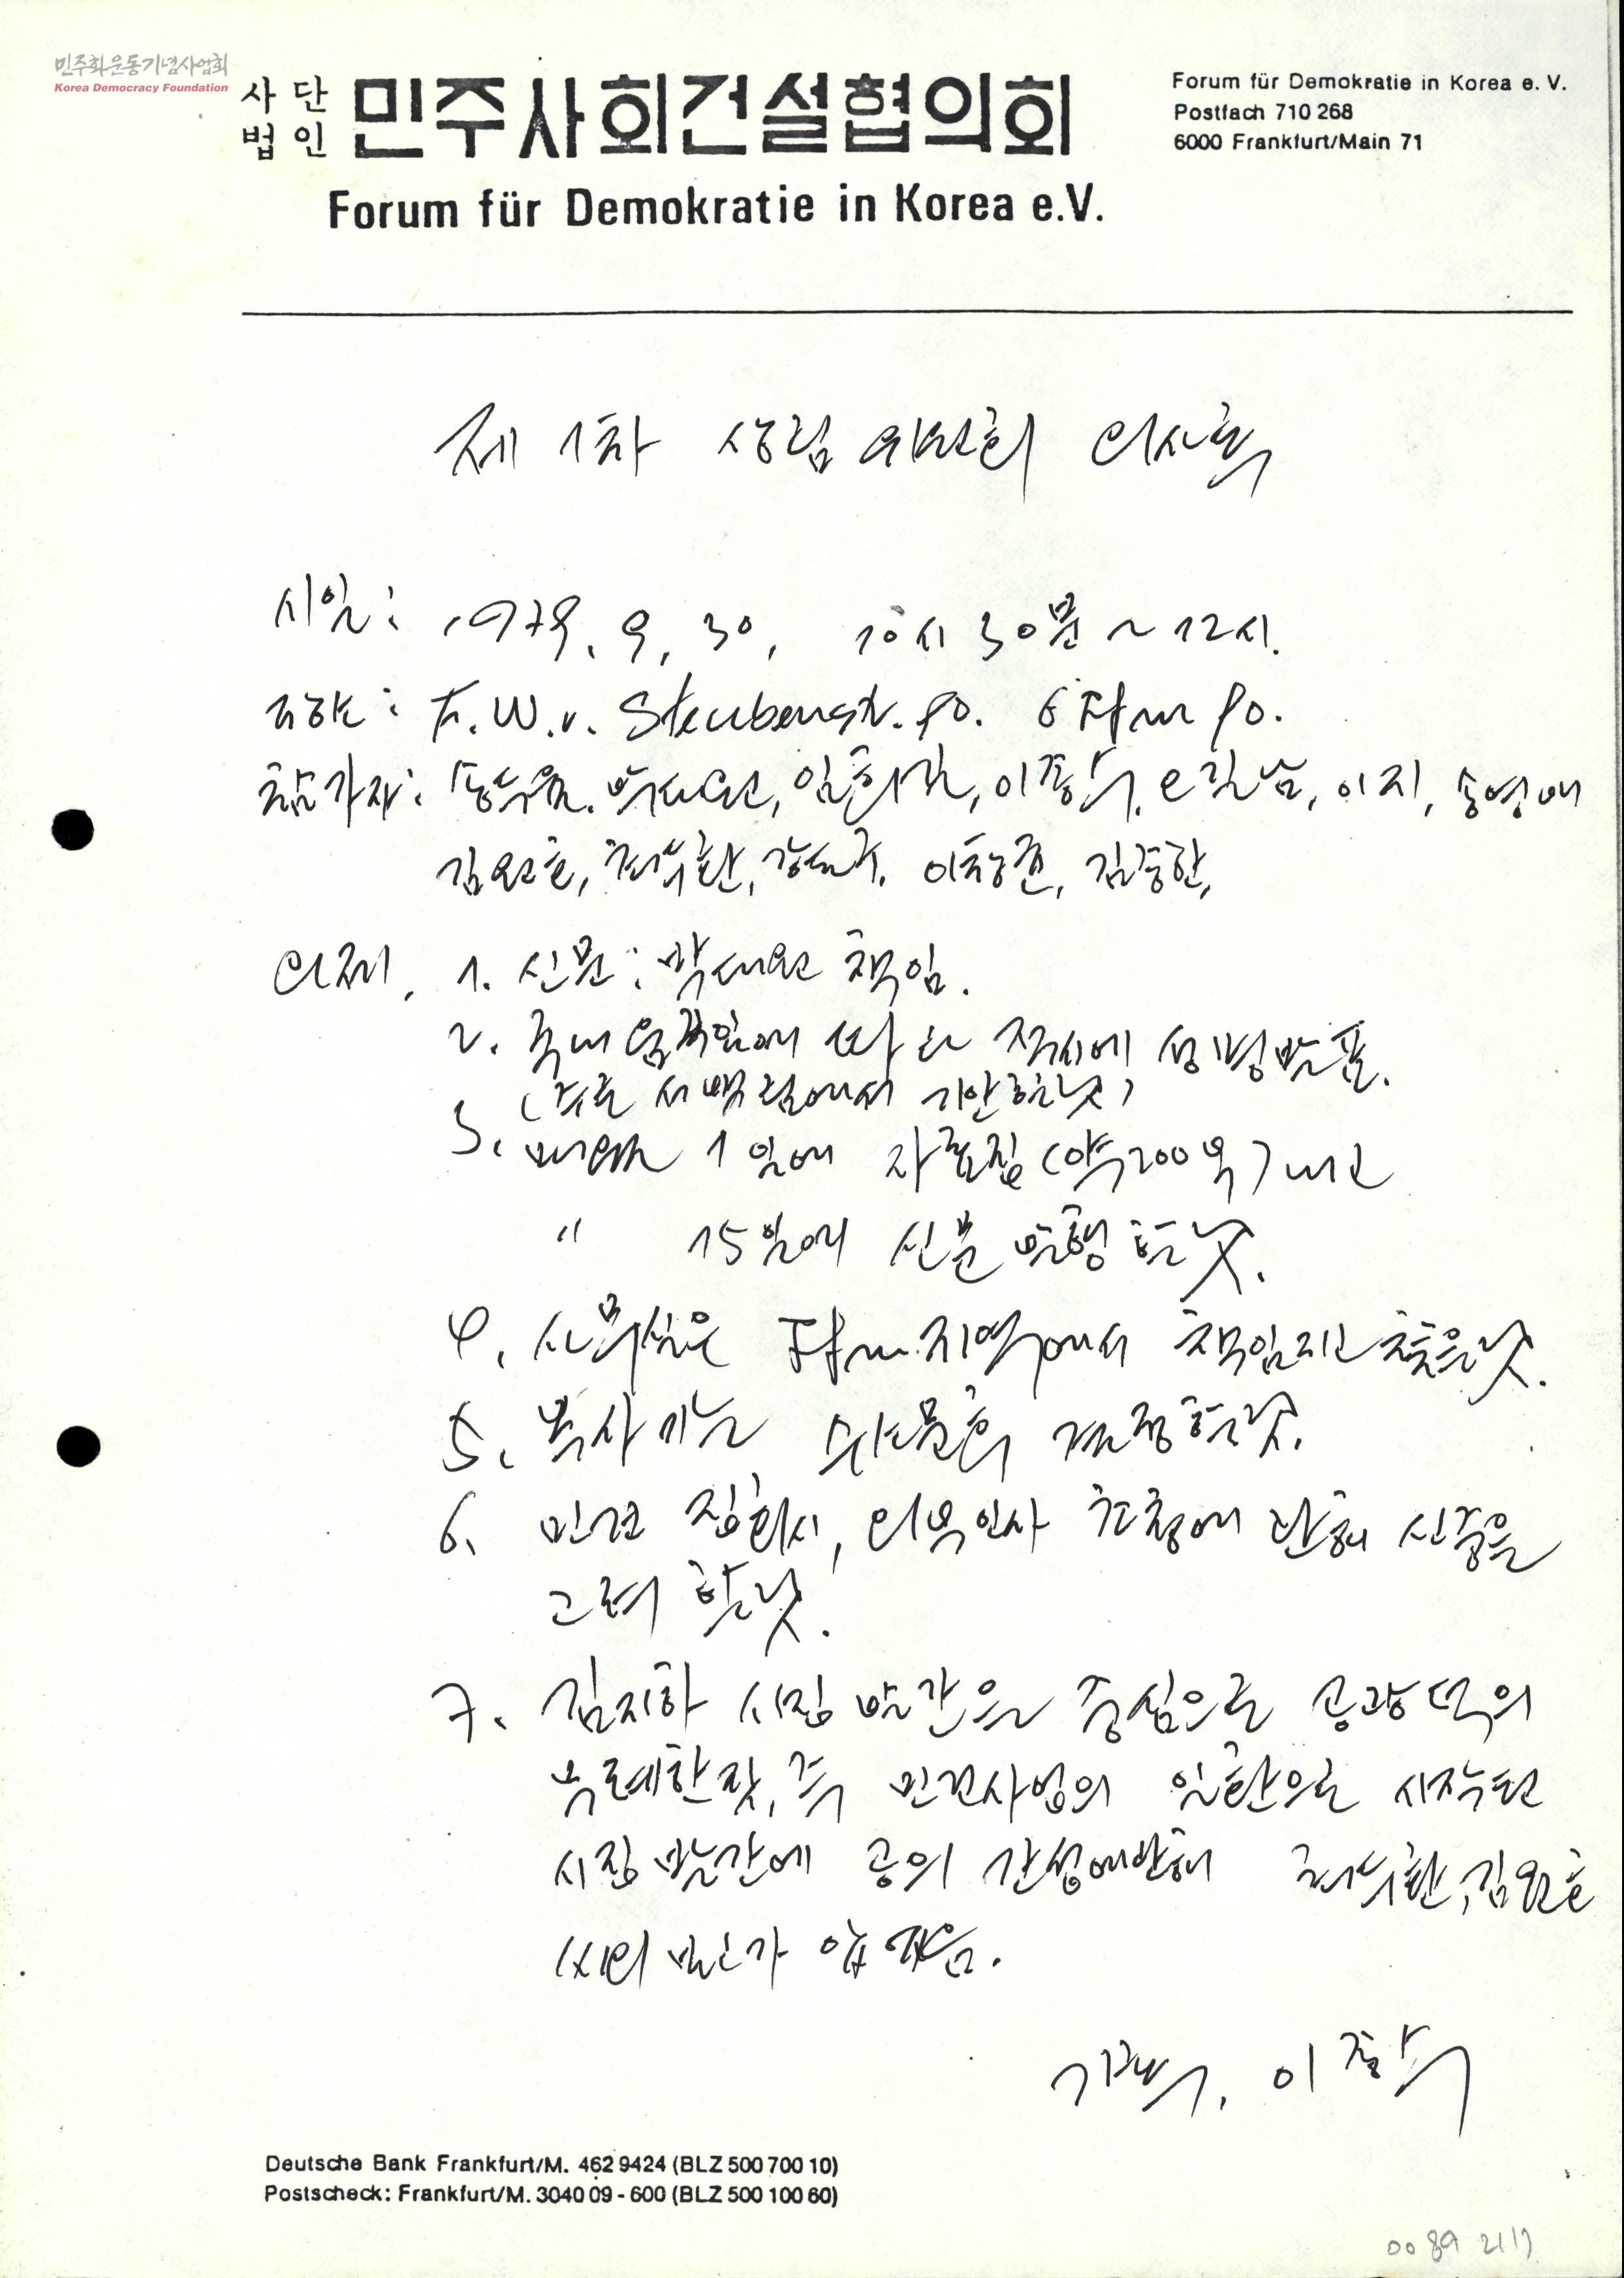 민주화운동기념사업회
Korea Democracy Foundation
사단법인 민주사회건설협의회
Forum für Demokratie in Korea e.V.
Forum für Demokratie in Korea e. V.
Postfach 710 268
6000 Frankfurt/Main 71
제 1차 상임위원회 의사록
시일: 1979. 9. 30. 10시 30분 ~ 12시.
F.W.v. Steubenstr. 90. 6 Ffm 90.
참가자: 송두율, 박대원, 임희길, 이종수, 이지, 송영배
김원호, 최두환, 강돈구, 이창균, 김종한,
의제. 1. 신문: 박대원 책임.
2. 국내 움직임에 따라 적시에 성명발표.
(주로 서백림에서 기안할것)
3. 매월 1일에 자료집(약 200부) 내고
" 15일에 신문 발행할것.
4. 사무실은 Ffm 지역에서 책임지고 찾을것.
5. 복사기는 결정할것.
6. 민건 집회시, 외부인사 초청에 관해 신중을
고려할것.
7. 김지하 시집 발간을 중심으로 공광덕의
무례한 짓, 즉 민건사업의 일환으로 시작된
시집 발간에 공의 간섭에 관해 최두환, 김원호
씨의 보고가 있었음.
기록. 이종수
Deutsche Bank Frankfurt/M. 462 9424 (BLZ 500 700 10)
Postscheck: Frankfurt/M. 3040 09 - 600 (BLZ 500 100 60)